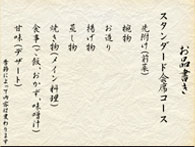 お品書き
スタンダード会席コース
先附け(前菜)
椀物
お造り
揚げ物
蒸し物
焼き物(メイン料理)
食事(ご飯、おかず、味噌汁)
甘味(デザート)
季節によって内容は変わります